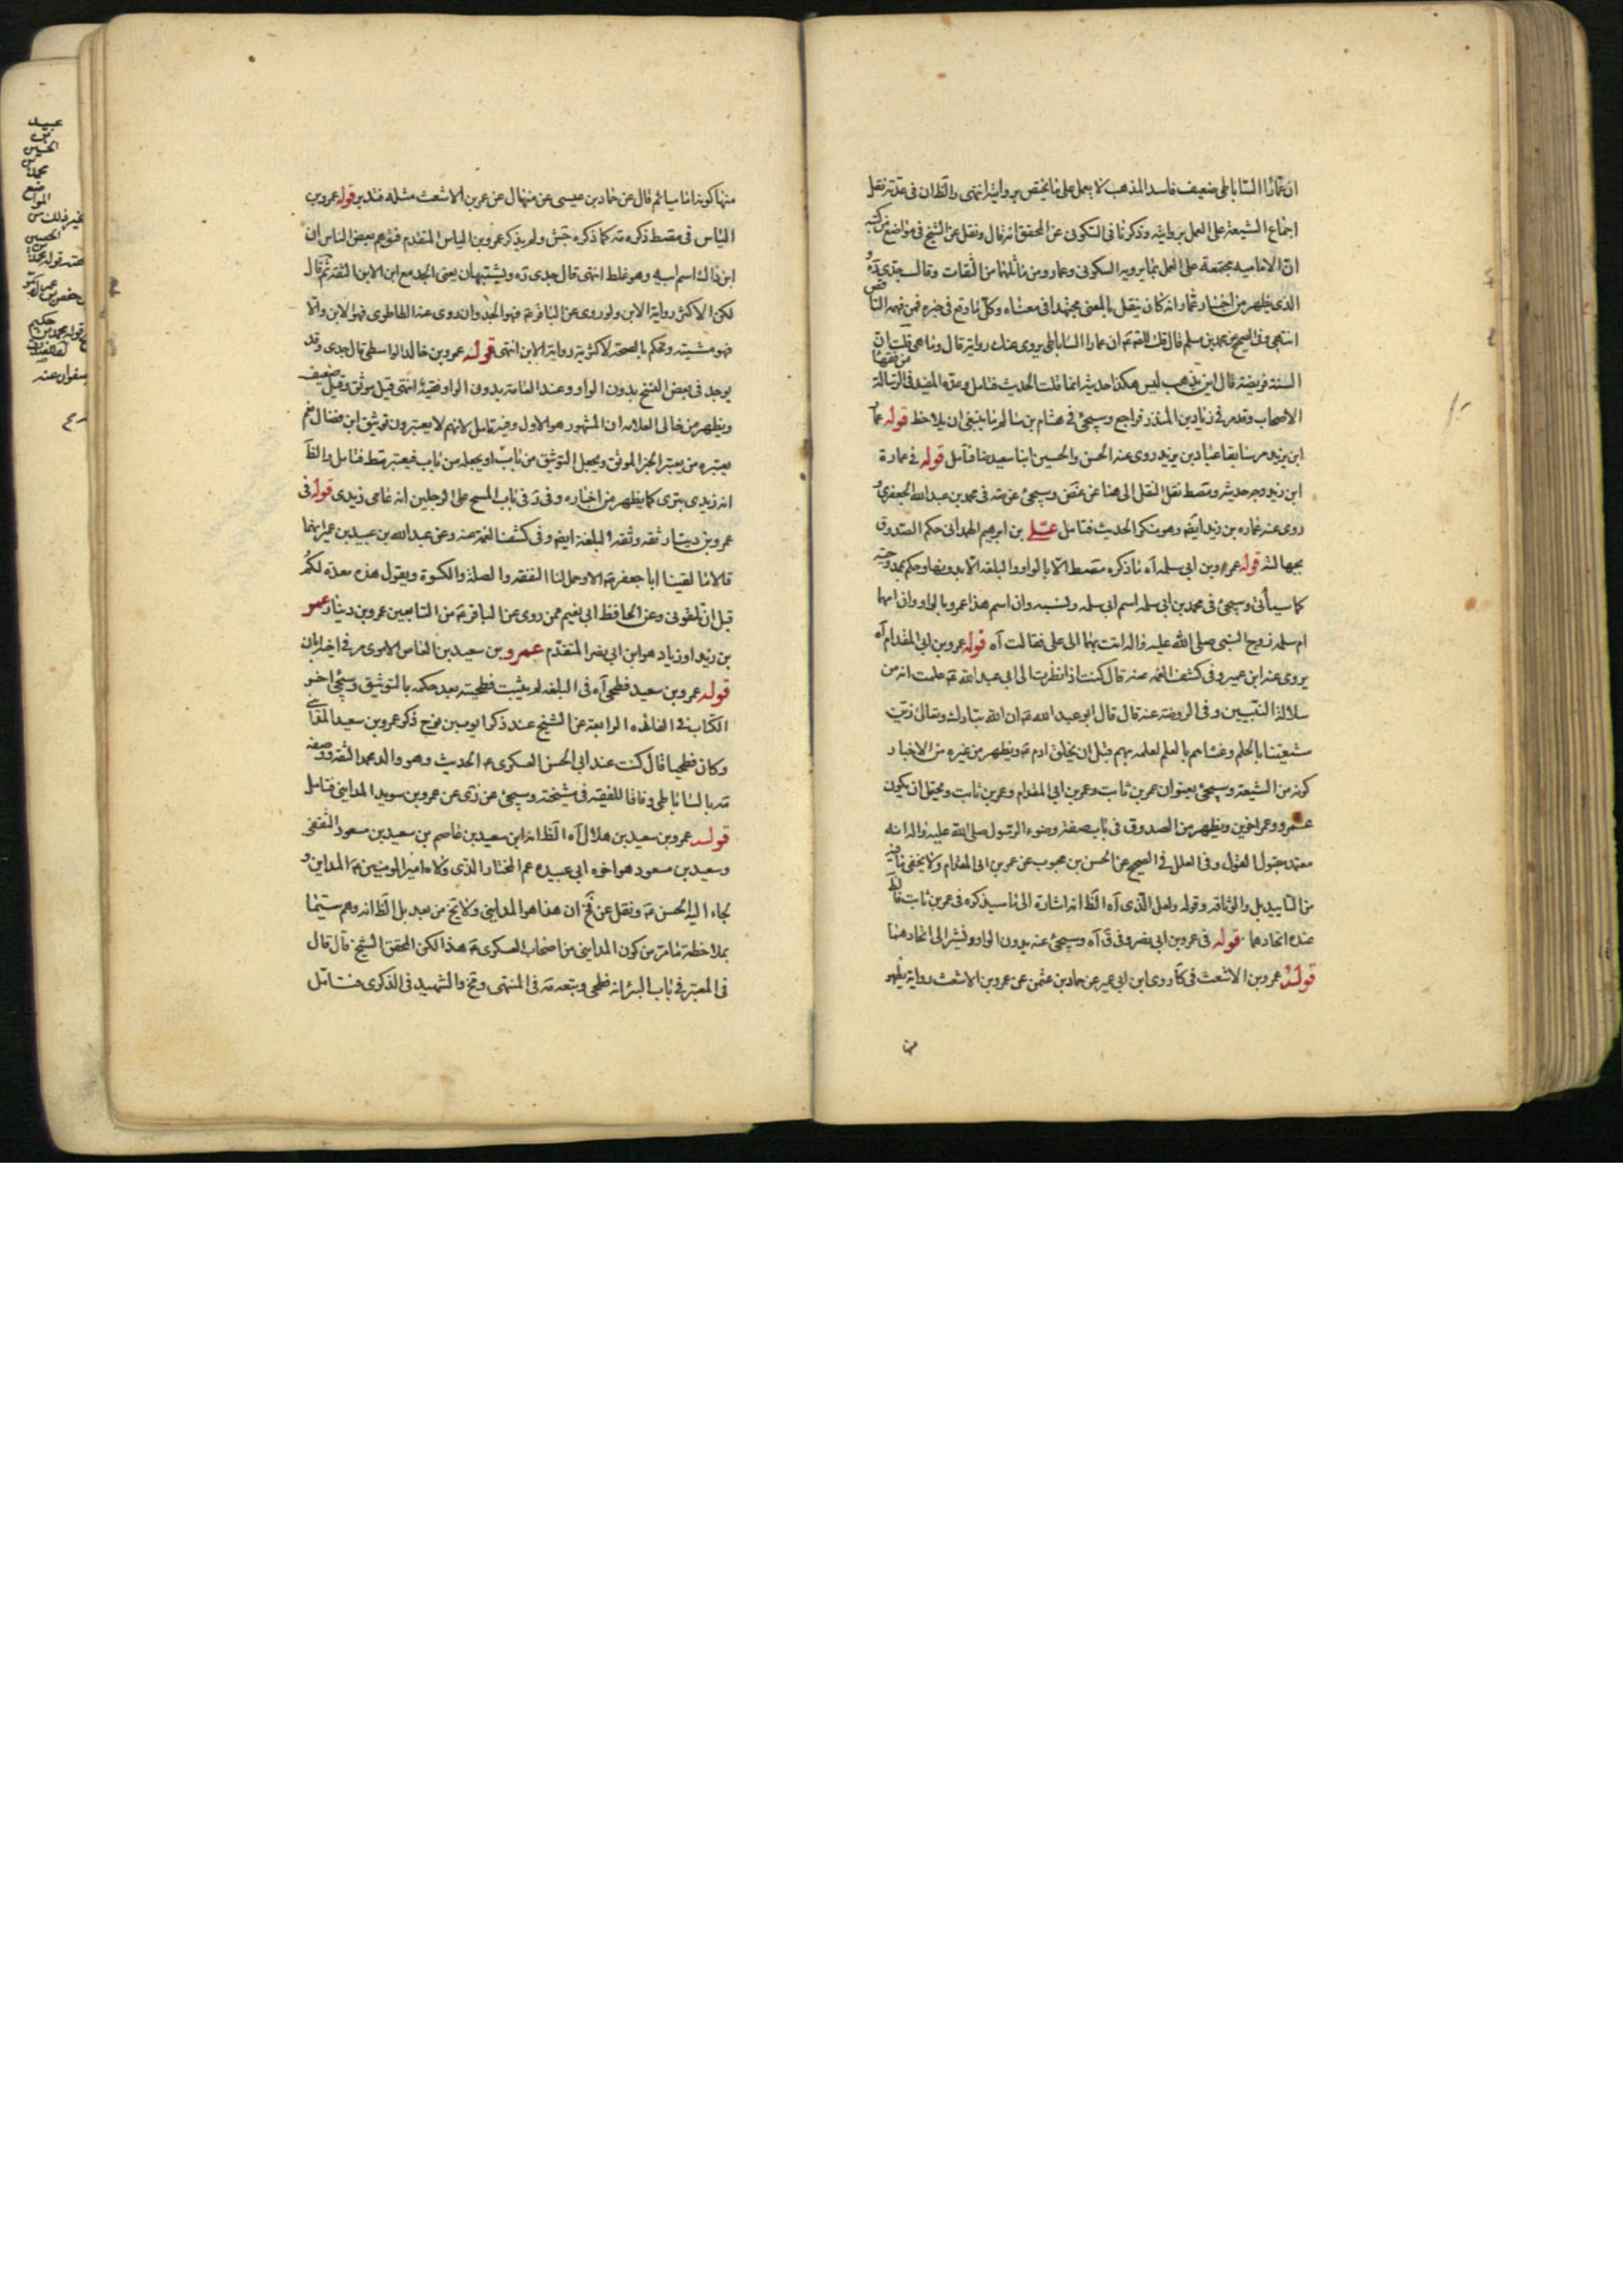 ان عمارا الساباطى ضعيف فاسد المذهب لا يعمل على ما يختص بروايته انتهى والظ ان فى عدة نقل
اجماع الشيعة على العمل بروايته وذكرنا فى السكونى عن المحقق انه قال ونقل عن الشيخ فى مواضع من كتبه
ان الامامية مجتمعة على العمل بما يرويه السكونى وعمار ومن ماثلهما من الثقات وقال جدى ره
الذى يظهر من اخبار عمار انه كان ينقل بالمعنى مجتهدا فى معناه وكل ما وقع فى خبره فمن فهمه الناقص
انتهى وفى الصحيح عن محمد بن مسلم قال قلت للصم ان عمارا الساباطى يروى عنك رواية قال وما هى قلت ان
السنة فريضة قال اين يذهب ليس هكذا حديثه انما قلت الحديث فتامل وعده المفيد فى الرسالة من فقهاء
الاصحاب وقد مر فى زياد بن المنذر فراجع وسيجئ فى هشام بن سالم ما ينبغى ان يلاحظ قوله عمار
ابن يزيد مر سابقا عباد بن يزيد روى عنه الحسن والحسين ابنا سعيد هنا فتامل قوله فى عمارة
ابن زيد وجه حديثه ومصط نقل النقل الى هنا عن غض وسيجئ عن مه فى محمد بن عبد الله الجعفرى
روى عنه عماره بن زيد ايضا وهو منكر الحديث فتامل على بن ابرهيم الهمدانى حكم الصدوق
بجهالته قوله عمرو بن ابى سلمه آه ما ذكره مصط الا بالواو والبلغه الا بدونها وحكم بمدوحيته
كما سيأتى وسيجئ فى محمد بن ابى سلمه اسم ابى سلمه ونسبه وان اسم هذا عمرو بالواو وان امهما
ام سلمه زوج النبى صلى الله عليه واله اتت بهما الى على فقالت آه قوله عمرو بن ابى المقدام آه
يروى عنه ابن عمير وفى كشف الغمه عنه قال كنت اذا نظرت الى ابى عبد الله ع علمت انه من
سلالة النبيين وفى الروضة عنه قال قال ابو عبد الله ع ان الله تبارك وتعالى زين
شيعتنا بالحلم وغشاهم بالعلم لعلمه بهم قبل ان يخلق ادم ع ويظهر من غيره من الاخبار
كونه من الشيعة وسيجئ بعنوان عمر بن ثابت وعمر بن ابى المقدام وعمر بن ثابت ويحتمل ان يكون
عمرو وعمر اخوين ويظهر من الصدوق فى باب صفة وضوء الرسول صلى الله عليه واله انه
معتمد مقبول القول وفى العلل فى الصحيح عن الحسن بن محبوب عن عمر بن ابى المقدام ولا يخفى ما فيه
من التاييد بل والوثاقه وقوله ولعل الذى آه الظ انه اشارة الى ما سيذكره فى عمر بن ثابت فالظ
عنده اتحادهما قوله فى عمرو بن ابى نصر وفى ق آه وسيجئ عنه بدون الواو ونشير الى اتحاد هنا
قوله عمرو بن الاشعث فى كا روى ابن ابى عمير عن حماد بن عثمن عن عمرو بن الاشعث رواية يظهر
منها
منها كونه اماميا ثم قال عن حماد بن عيسى عن منهال عن عمر بن الاشعث مثله فتدبر قوله عمرو بن
الياس فى مصط ذكره مه كما ذكره جش ولم يذكر عمرو بن الياس المتقدم فتوهم بعض الناس ان
ابن ذاك اسم ابيه وهو غلط انتهى قال جدى ره ويشتبهان يعنى الجد مع ابن الابن الثقه ثم قال
لكن الاكثر رواية الابن ولو روى عن الباقر ع فهو الجد وان روى عنه الطاطرى فهو الابن والا
فهو مشتبه وتحكم بالصحة لاكثرية رواية الابن انتهى قوله عمرو بن خالد الواسطى قال جدى وقد
يوجد فى بعض النسخ بدون الواو وعند العامة بدون الواو فقية انتهى قيل موثق وقيل ضعيف
ويظهر من خالى العلامه ان المشهور هو الاول وفيه تامل لانهم لا يعتبرون توثيق ابن فضال نعم
يعتبره من يعتبر الخبر الموثق ويجعل التوثيق من باب او يجعله من باب فيعتبر قط فتامل والظ
انه زيدى بترى كما يظهر من اخباره وفى ر فى باب المسح على الرجلين انه عامى زيدى قوله فى
عمرو بن دينار ثقه وثقه البلغه ايضا وفى كشف الغمه عنه وعن عبد الله بن عبيد بن عمير انهما
قالا ما لقينا ابا جعفر ع الا وحمل الينا النفقه والصلة والكسوة ويقول هذه معدة لكم
قبل ان تلقونى وعن الحافظ ابى نعيم ممن روى عن الباقر ع من التابعين عمرو بن دينار عمر
بن زيد او زياد هو ابن ابى نصر المتقدم عمرو بن سعيد بن العاص الاموى مر فى اخيه ابان
قوله عمرو بن سعيد فطحى آه فى البلغه لم يثبت فطحيته بعد حكمه بالتوثيق وسيجئ اخر
الكتاب فى الفائده الرابعة عن الشيخ عند ذكر ايوب بن نوح ذكر عمرو بن سعيد المداينى
وكان فطحيا قال كنت عند ابى الحسن العسكرى ع الحديث وهو والد محمد الثقه ووصفه
مه بالساباطى وفاقا للفقيه فى مشيخته وسيجئ عن زى عن عمرو بن سويد المداينى فتامل
قوله عمرو بن سعيد بن هلال آه الظ انه ابن سعيد بن عاصم بن سعيد بن مسعود الثقفى
وسعيد بن مسعود هو اخوه ابى عبيده عم المختار الذى ولاه امير المومنين ع المداين و
لجاء اليه الحسن ع ونقل عن تخ ان هذا هو المداينى ولا يخ من بعد بل الظ انه وهم سيما
بملاحظة ما مر من كون المداينى من اصحاب العسكرى ع هذا لكن المحقق الشيخ قال قال
فى المعتبر فى باب البئر انه فطحى وتبعه مه فى المنتهى وتخ والشهيد فى الذكرى فتامل
عبيد
بن
الحسين
محمد
المواضع
الحسين
حكيم
صفوان عنه